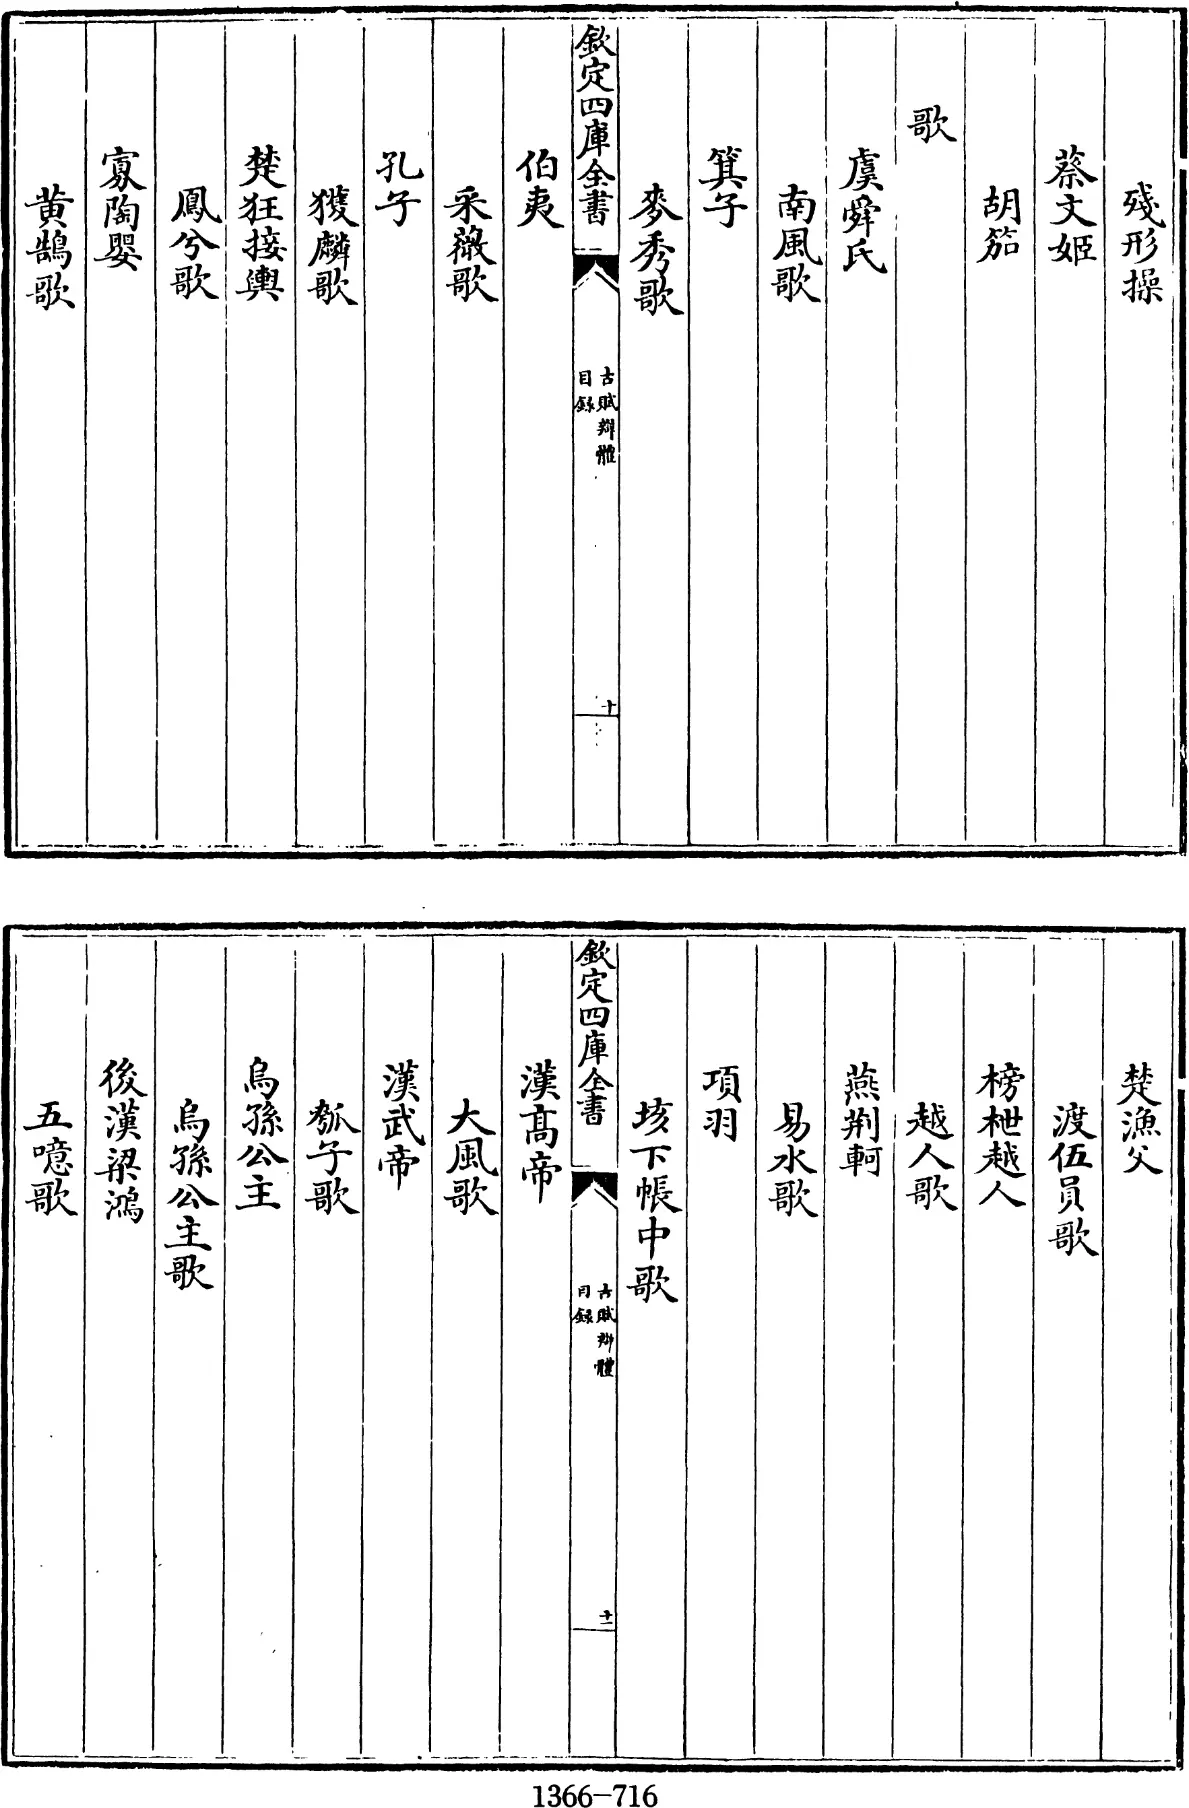 殘形操
蔡文姬
胡笳
歌
虞舜氏
南風歌
箕子
麥秀歌
欽定四庫全書
古賦辯體
目錄
十
伯夷
采薇歌
孔子
獲麟歌
楚狂接輿
鳳兮歌
寡陶嬰
黃鵠歌
楚漁父
渡伍員歌
榜枻越人
越人歌
燕荆軻
易水歌
項羽
垓下帳中歌
欽定四庫全書
古賦辯體
目錄
十一
漢高帝
大風歌
漢武帝
瓠子歌
烏孫公主
烏孫公主歌
後漢梁鴻
五噫歌
1366-716